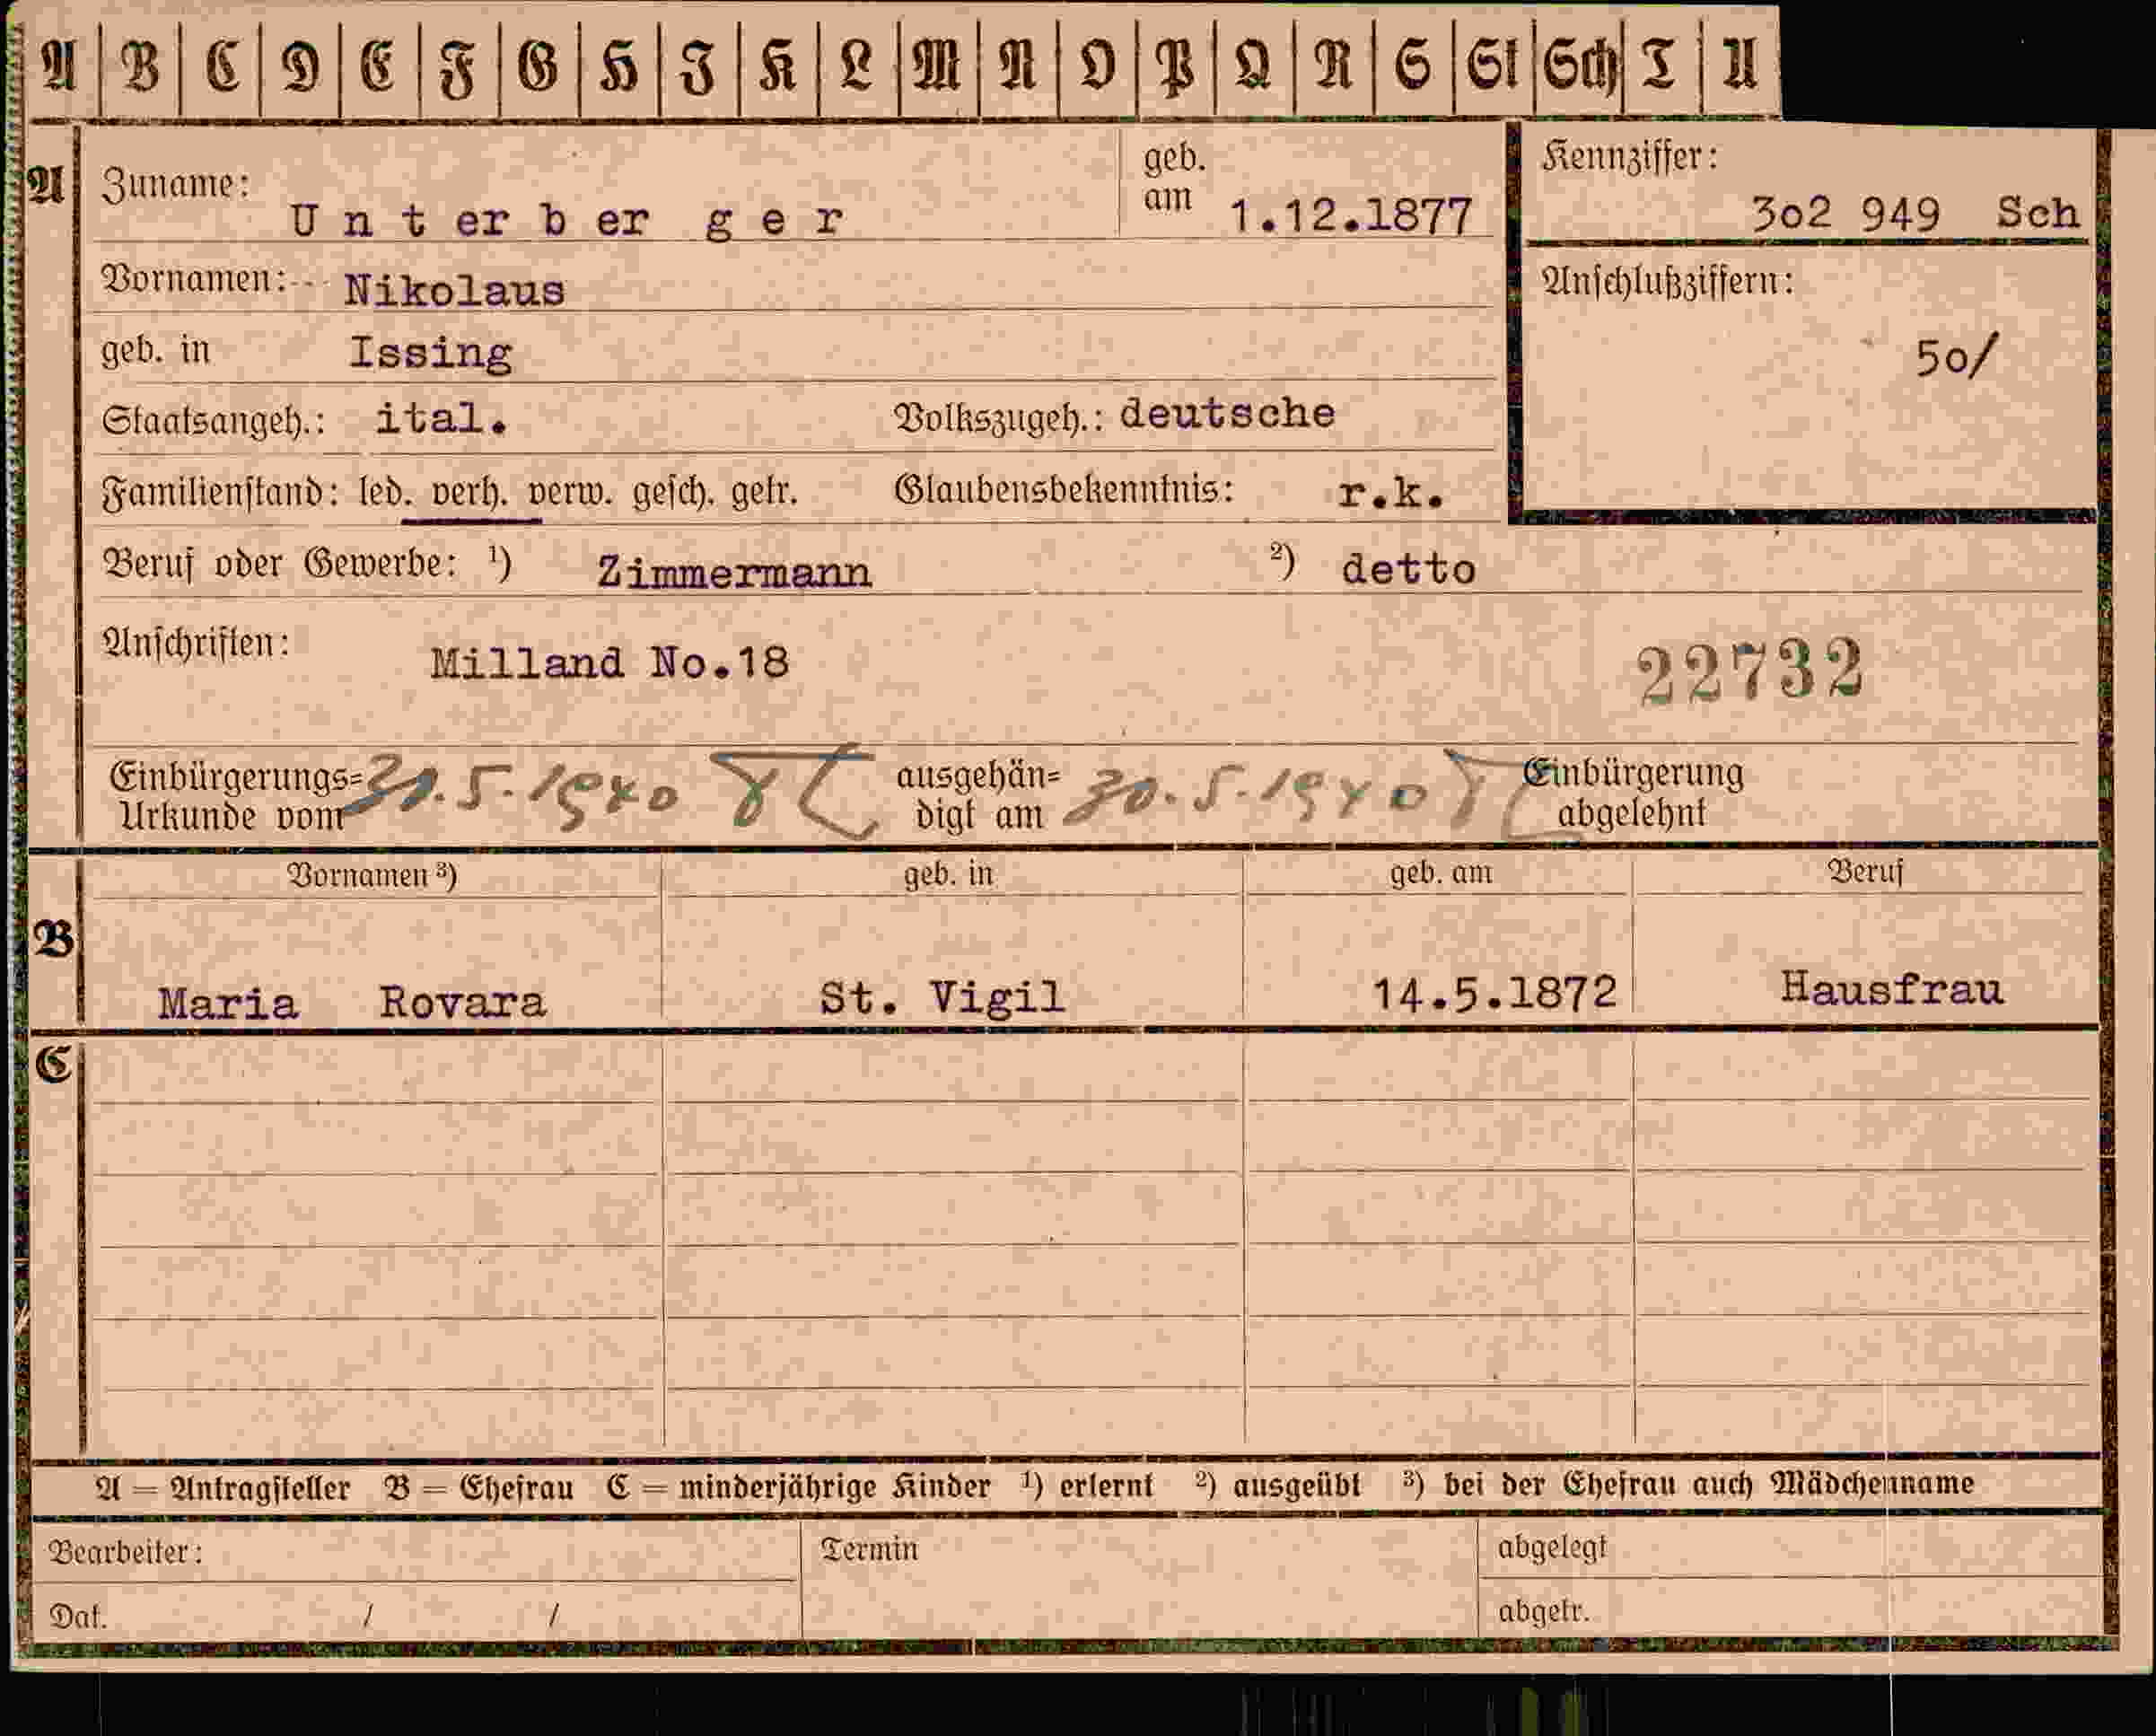 A B C D E F G H I K L M N O P Q R S St Sch T U
A Zuname: Unterberger geb. am 1.12.1877 Kennziffer: 302 949 Sch
Vornamen: Nikolaus Anschlußziffern:
geb. in Issing 50/
Staatsangeh.: ital. Volkszugeh.: deutsche
Familienstand: led. verh. verw. gesch. getr. Glaubensbekenntnis: r.k.
Beruf oder Gewerbe: ¹) Zimmermann ²) detto
Anschriften: Milland No.18 22732
Einbürgerungs= ausgehän= Einbürgerung
Urkunde vom .5.1940 digt am 30.5.1940 abgelehnt
Vornamen ³) geb. in geb. am Beruf
B Maria Rovara St. Vigil 14.5.1872 Hausfrau
C
A = Antragsteller B = Ehefrau C = minderjährige Kinder ¹) erlernt ²) ausgeübt ³) bei der Ehefrau auch Mädchenname
Bearbeiter: Termin abgelegt
Dat. / / abgetr.